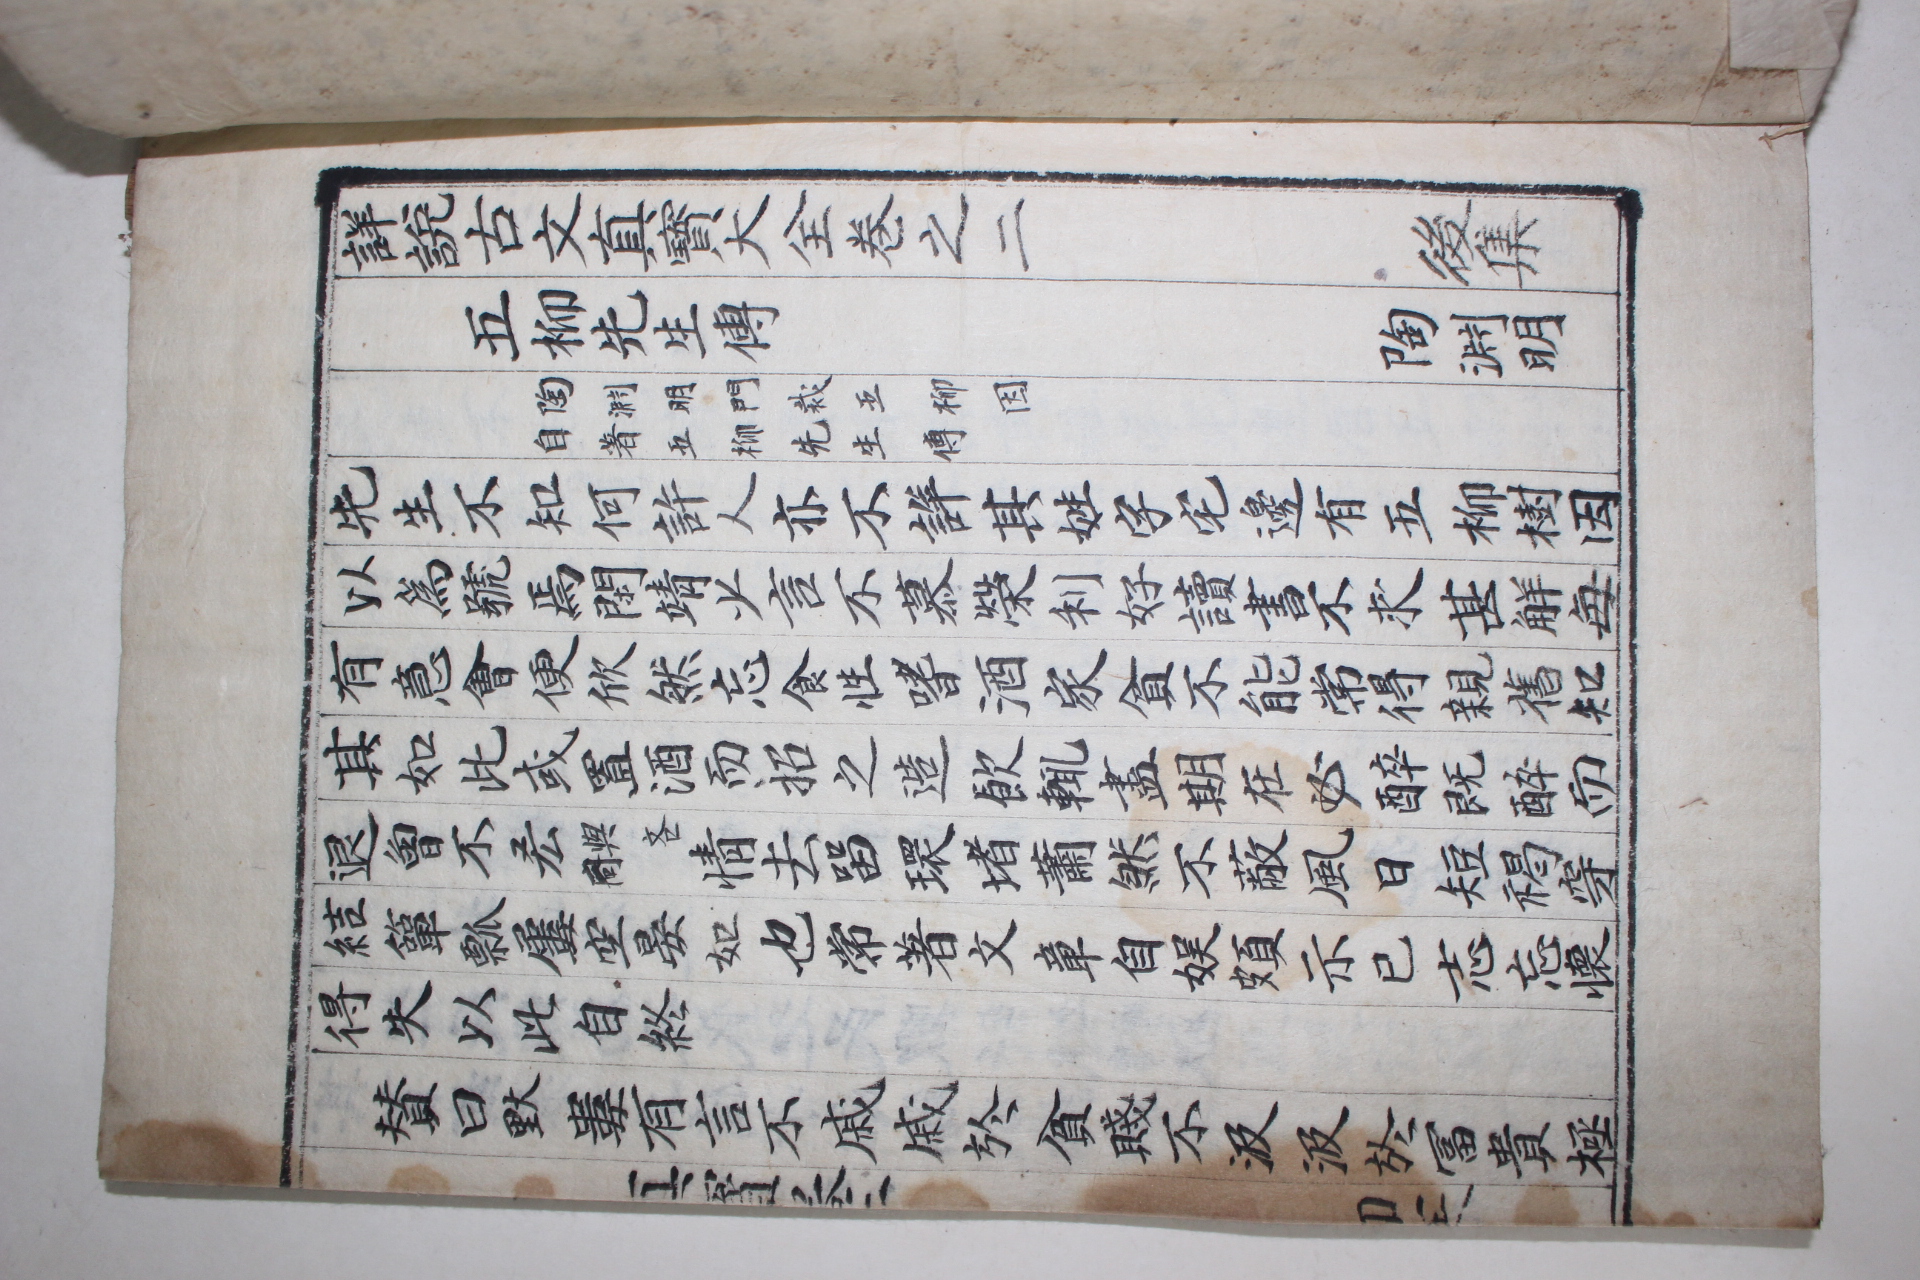 詳說古文真寶大全卷之二 後集
五柳先生傳 陶淵明
陶淵明門栽五柳因
自著五柳先生傳
先生不知何許人亦不詳其姓字宅邊有五柳樹因
以爲號焉閑靖少言不慕榮利好讀書不求甚解每
有意會便欣然忘食性嗜酒家貧不能常得親舊知
其如此或置酒而招之造飮輒盡期在必醉既醉而
退曾不 與吝 情去畱環堵蕭然不蔽風日短褐穿
結簞瓢屢空晏如也常著文章自娛頗示已志忘懷
得失以此自終
賛曰默婁有言不戚戚於貧賤不汲汲於冨貴極